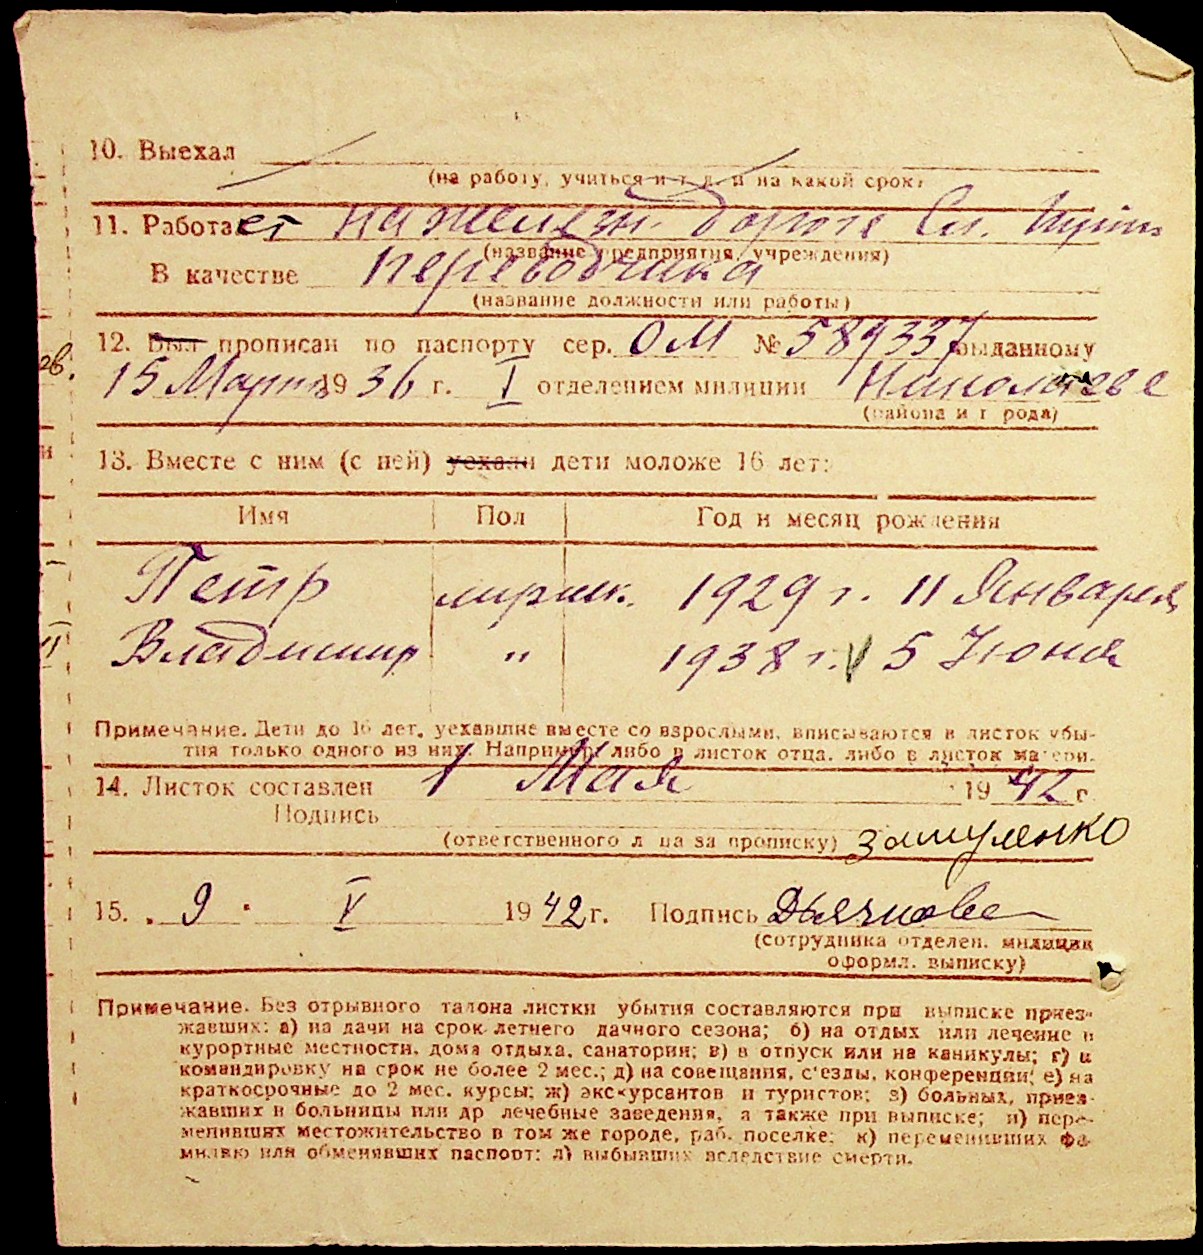 10. Выехал
(на работу, учиться и т. д. и на какой срок)
11. Работает на желези. дороге Сл. Пути
(название предприятия, учреждения)
В качестве переводчика
(название должности или работы)
12. Был прописан по паспорту сер. ОМ № 589337 выданному
15 Марта 1936 г. I отделением милиции Николаеве
(района и города)
13. Вместе с ним (с ней) уехали дети моложе 16 лет:
Имя Пол Год и месяц рождения
Петр мужск. 1929 г. 11 Января
Владимир " 1938 г. V 5 Июня
Примечание. Дети до 16 лет, уехавшие вместе со взрослыми, вписываются в листок убы-
тия только одного из них. Например: либо в листок отца, либо в листок матери.
14. Листок составлен 1 Мая 1942 г.
Подпись
(ответственного лица за прописку)
15. 9 V 1942 г. Подпись
(сотрудника отделен. милиции
оформл. выписку)
Примечание. Без отрывного талона листки убытия составляются при выписке приез-
жавших: а) на дачи на срок летнего дачного сезона; б) на отдых или лечение в
курортные местности, дома отдыха, санатории; в) в отпуск или на каникулы; г) в
командировку на срок не более 2 мес.; д) на совещания, с'езды, конференции; е) на
краткосрочные до 2 мес. курсы; ж) экскурсантов и туристов; з) больных, приез-
жавших в больницы или др лечебные заведения, а также при выписке; и) пере-
менивших местожительство в том же городе, раб. поселке; к) переменивших фа-
милию или обменявших паспорт; л) выбывших вследствие смерти.